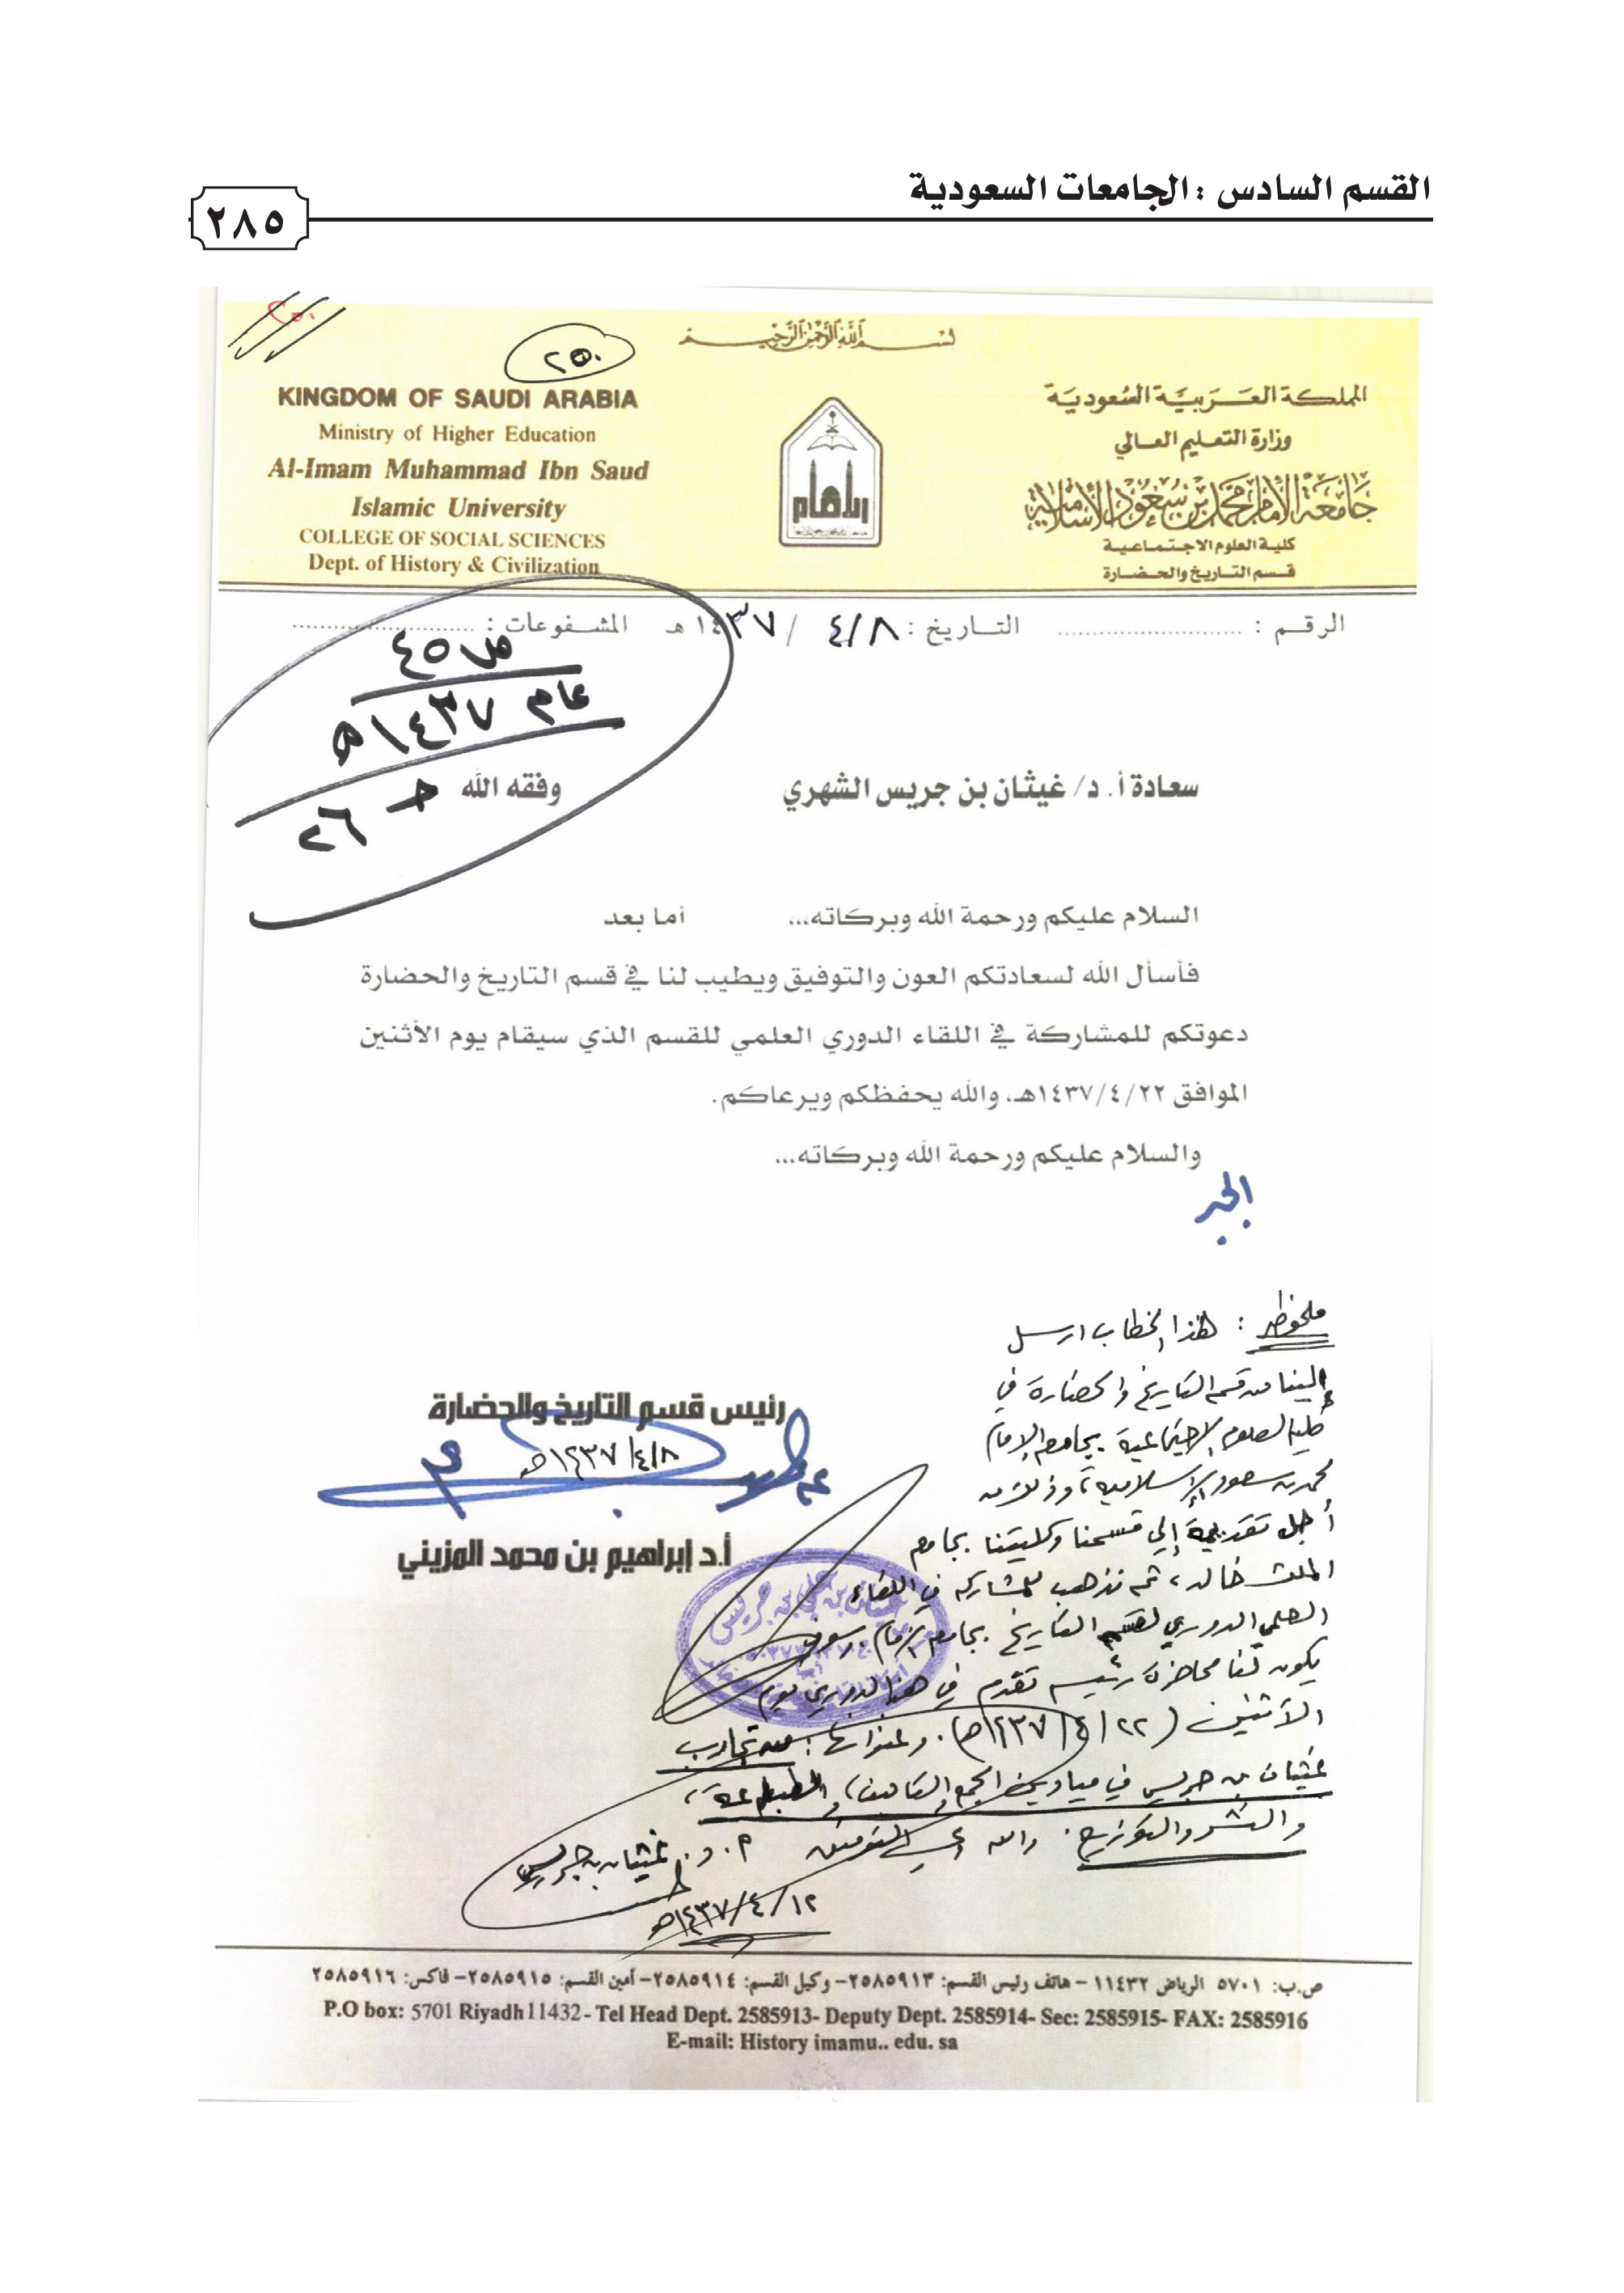 القسم السادس : الجامعات السعودية
٢٨٥
٢٥٠
بسم الله الرحمن الرحيم
KINGDOM OF SAUDI ARABIA
Ministry of Higher Education
Al-Imam Muhammad Ibn Saud
Islamic University
COLLEGE OF SOCIAL SCIENCES
Dept. of History & Civilization
المملكة العربية السعودية
وزارة التعليم العالي
جامعة الإمام محمد بن سعود الإسلامية
كلية العلوم الاجتماعية
قسم التاريخ والحضارة
الرقم : التاريخ : ٤/٨ / ١٤٣٧ هـ المشفوعات :
ص ٤٥
عام ١٤٣٧هـ
حـ ٢٦
سعادة أ. د/ غيثان بن جريس الشهري وفقه الله
السلام عليكم ورحمة الله وبركاته... أما بعد
فأسأل الله لسعادتكم العون والتوفيق ويطيب لنا في قسم التاريخ والحضارة
دعوتكم للمشاركة في اللقاء الدوري العلمي للقسم الذي سيقام يوم الأثنين
الموافق ١٤٣٧/٤/٢٢هـ، والله يحفظكم ويرعاكم.
والسلام عليكم ورحمة الله وبركاته...
رئيس قسم التاريخ والحضارة
١٤٣٧/٤/٨هـ
أ.د إبراهيم بن محمد المزيني
ملحوظة : هذا الخطاب ارسل
إلينا من قسم التاريخ والحضارة في
كلية العلوم الاجتماعية بجامعة الإمام
محمد بن سعود الإسلامية، وذلك من
أجل تقديمه إلى قسمنا وكليتنا بجامعة
الملك خالد، ثم نذهب للمشاركة في اللقاء
العلمي الدوري لقسم التاريخ بجامعة الإمام. وسوف
يكون لنا محاضرة رئيسة تقدم في هذا الدوري يوم
الأثنين (٢٢/٤/١٤٣٧هـ). وعنوانها : من تجارب
غيثان بن جريس في ميادين الجمع والتأليف، والطباعة،
والنشر والتوزيع. والله ولي التوفيق غيثان بن جريس
١٤٣٧/٤/١٢هـ
ص.ب: ٥٧٠١ الرياض ١١٤٣٢ – هاتف رئيس القسم: ٢٥٨٥٩١٣– وكيل القسم: ٢٥٨٥٩١٤– أمين القسم: ٢٥٨٥٩١٥– فاكس: ٢٥٨٥٩١٦
P.O box: 5701 Riyadh 11432- Tel Head Dept. 2585913- Deputy Dept. 2585914- Sec: 2585915- FAX: 2585916
E-mail: History imamu.. edu. sa